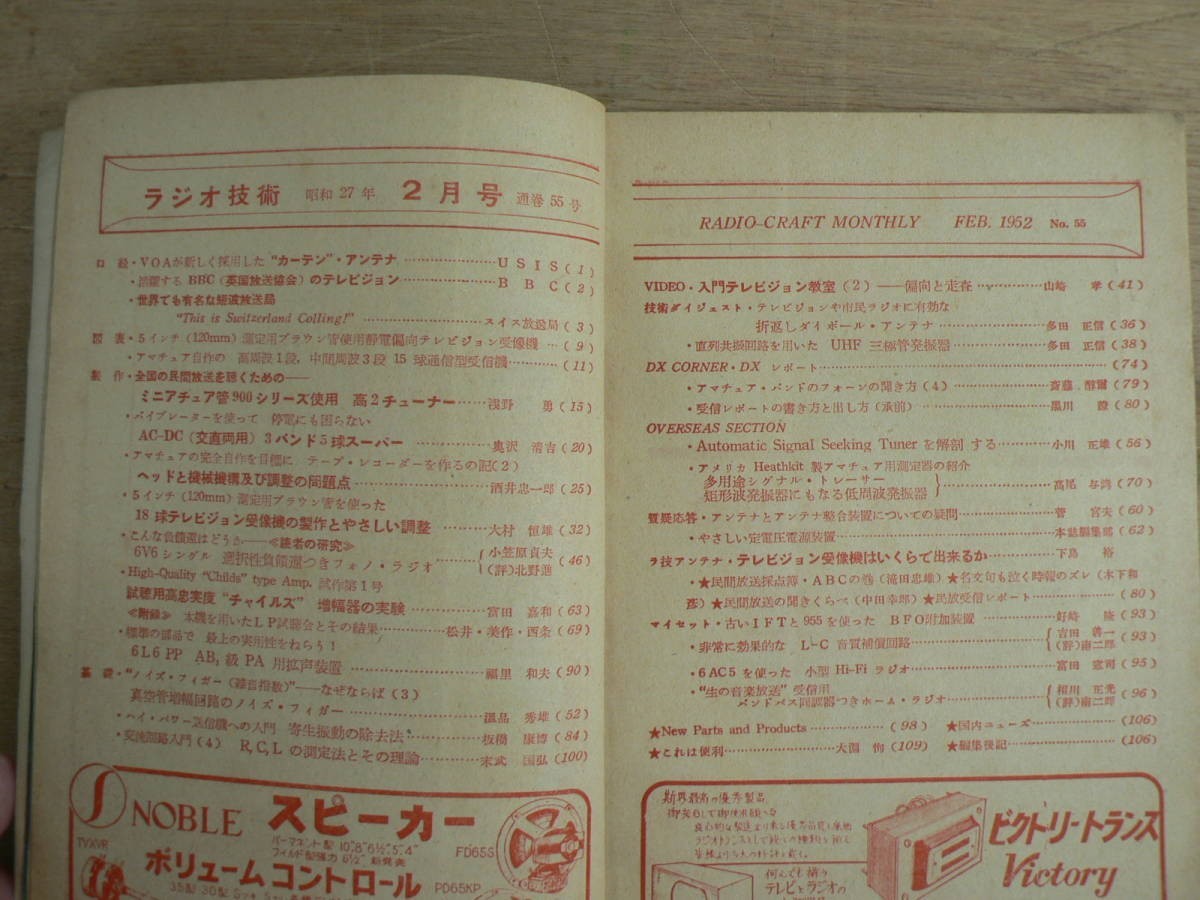 ラジオ技術 昭和27年 2月号 通巻55号
口絵・VOAが新しく採用した“カーテン”・アンテナ………USIS(1)
・活躍する BBC (英国放送協会) のテレビジョン………BBC(2)
・世界でも有名な短波放送局
“This is Switzerland Colling!”………スイス放送局(3)
図表・5インチ (120mm) 測定用ブラウン管使用静電偏向テレビジョン受像機…(9)
・アマチュア自作の 高周波1段, 中間周波3段 15球通信型受信機………(11)
製作・全国の民間放送を聴くための——
ミニアチュア管900シリーズ使用 高2チューナー………浅野 勇(15)
・バイブレーターを使って 停電にも困らない
AC-DC (交直両用) 3バンド5球スーパー………奥沢 清吉(20)
・アマチュアの完全自作を目標に テープ・レコーダーを作るの記(2)
ヘッドと機械機構及び調整の問題点………酒井忠一郎(25)
・5インチ (120mm) 測定用ブラウン管を使った
18球テレビジョン受像機の製作とやさしい調整………大村 恒雄(32)
・こんな負饋還はどうか——≪読者の研究≫
6V6シングル 選択性負饋還つきフォノ・ラジオ………小笠原貞夫 (評)北野進(46)
・High-Quality “Childs” type Amp. 試作第1号
試聴用高忠実度 “チャイルズ” 増幅器の実験………富田 嘉和(63)
≪附録≫ 本機を用いたLP試聴会とその結果………松井・美作・西条(69)
・標準の部品で 最上の実用性をねらう!
6L6 PP AB₁級PA用拡声装置………福里 和夫(90)
基礎・“ノイズ・フィガー(雑音指数)”——なぜならば(3)
真空管増幅回路のノイズ・フィガー………温品 秀雄(52)
・ハイ・パワー送信機への入門 寄生振動の除去法………板橋 康博(84)
・交流回路入門(4) R,C,L の測定法とその理論………末武 国弘(100)
NOBLE スピーカー
TYXVR
パーマネント型 10″8″6½″5″4″
フィルド型強力 6½″ 新発売
FD65S
ボリュームコントロール
PD65KP
RADIO-CRAFT MONTHLY FEB. 1952 No. 55
VIDEO・入門テレビジョン教室(2)——偏向と走査………山崎 孝(41)
技術ダイジェスト・テレビジョンや市民ラジオに有効な
折返しダイポール・アンテナ………多田 正信(36)
・直列共振回路を用いた UHF 三極管発振器………多田 正信(38)
DX CORNER・DX レポート………(74)
・アマチュア・バンドのフォーンの聞き方(4)………斎藤 醇爾(79)
・受信レポートの書き方と出し方(承前)………黒川 瞭(80)
OVERSEAS SECTION
・Automatic Signal Seeking Tunerを解剖する………小川 正雄(56)
・アメリカ Heathkit 製アマチュア用測定器の紹介
多用途シグナル・トレーサー
矩形波発振器にもなる低周波発振器………高尾 与満(70)
質疑応答・アンテナとアンテナ整合装置についての疑問………菅 宮夫(60)
・やさしい定電圧電源装置………本誌編集部(62)
ラ技アンテナ・テレビジョン受像機はいくらで出来るか………下島 裕
・★民間放送採点簿・ABCの巻 (滝田忠雄) ★名文句も泣く時報のズレ (木下和
彦) ★民間放送の聞きくらべ (中田幸郎) ★民放受信レポート………(80)
マイセット・古いIFTと955を使った BFO附加装置………好崎 隆(93)
・非常に効果的な L-C 音質補償回路………吉田 善一 (評)南二郎(93)
・6AC5を使った 小型 Hi-Fi ラジオ………富田 憲司(95)
・“生の音楽放送” 受信用
バンドパス同調器つきホーム・ラジオ………相川 正光 (評)南二郎(96)
★New Parts and Products………(98) ★国内ニューズ………(106)
★これは便利………大淵 恂(109) ★編集後記………(106)
斯界最高の優秀製品
ビクトリートランス
Victory
何んでも揃う
テレビとラジオの